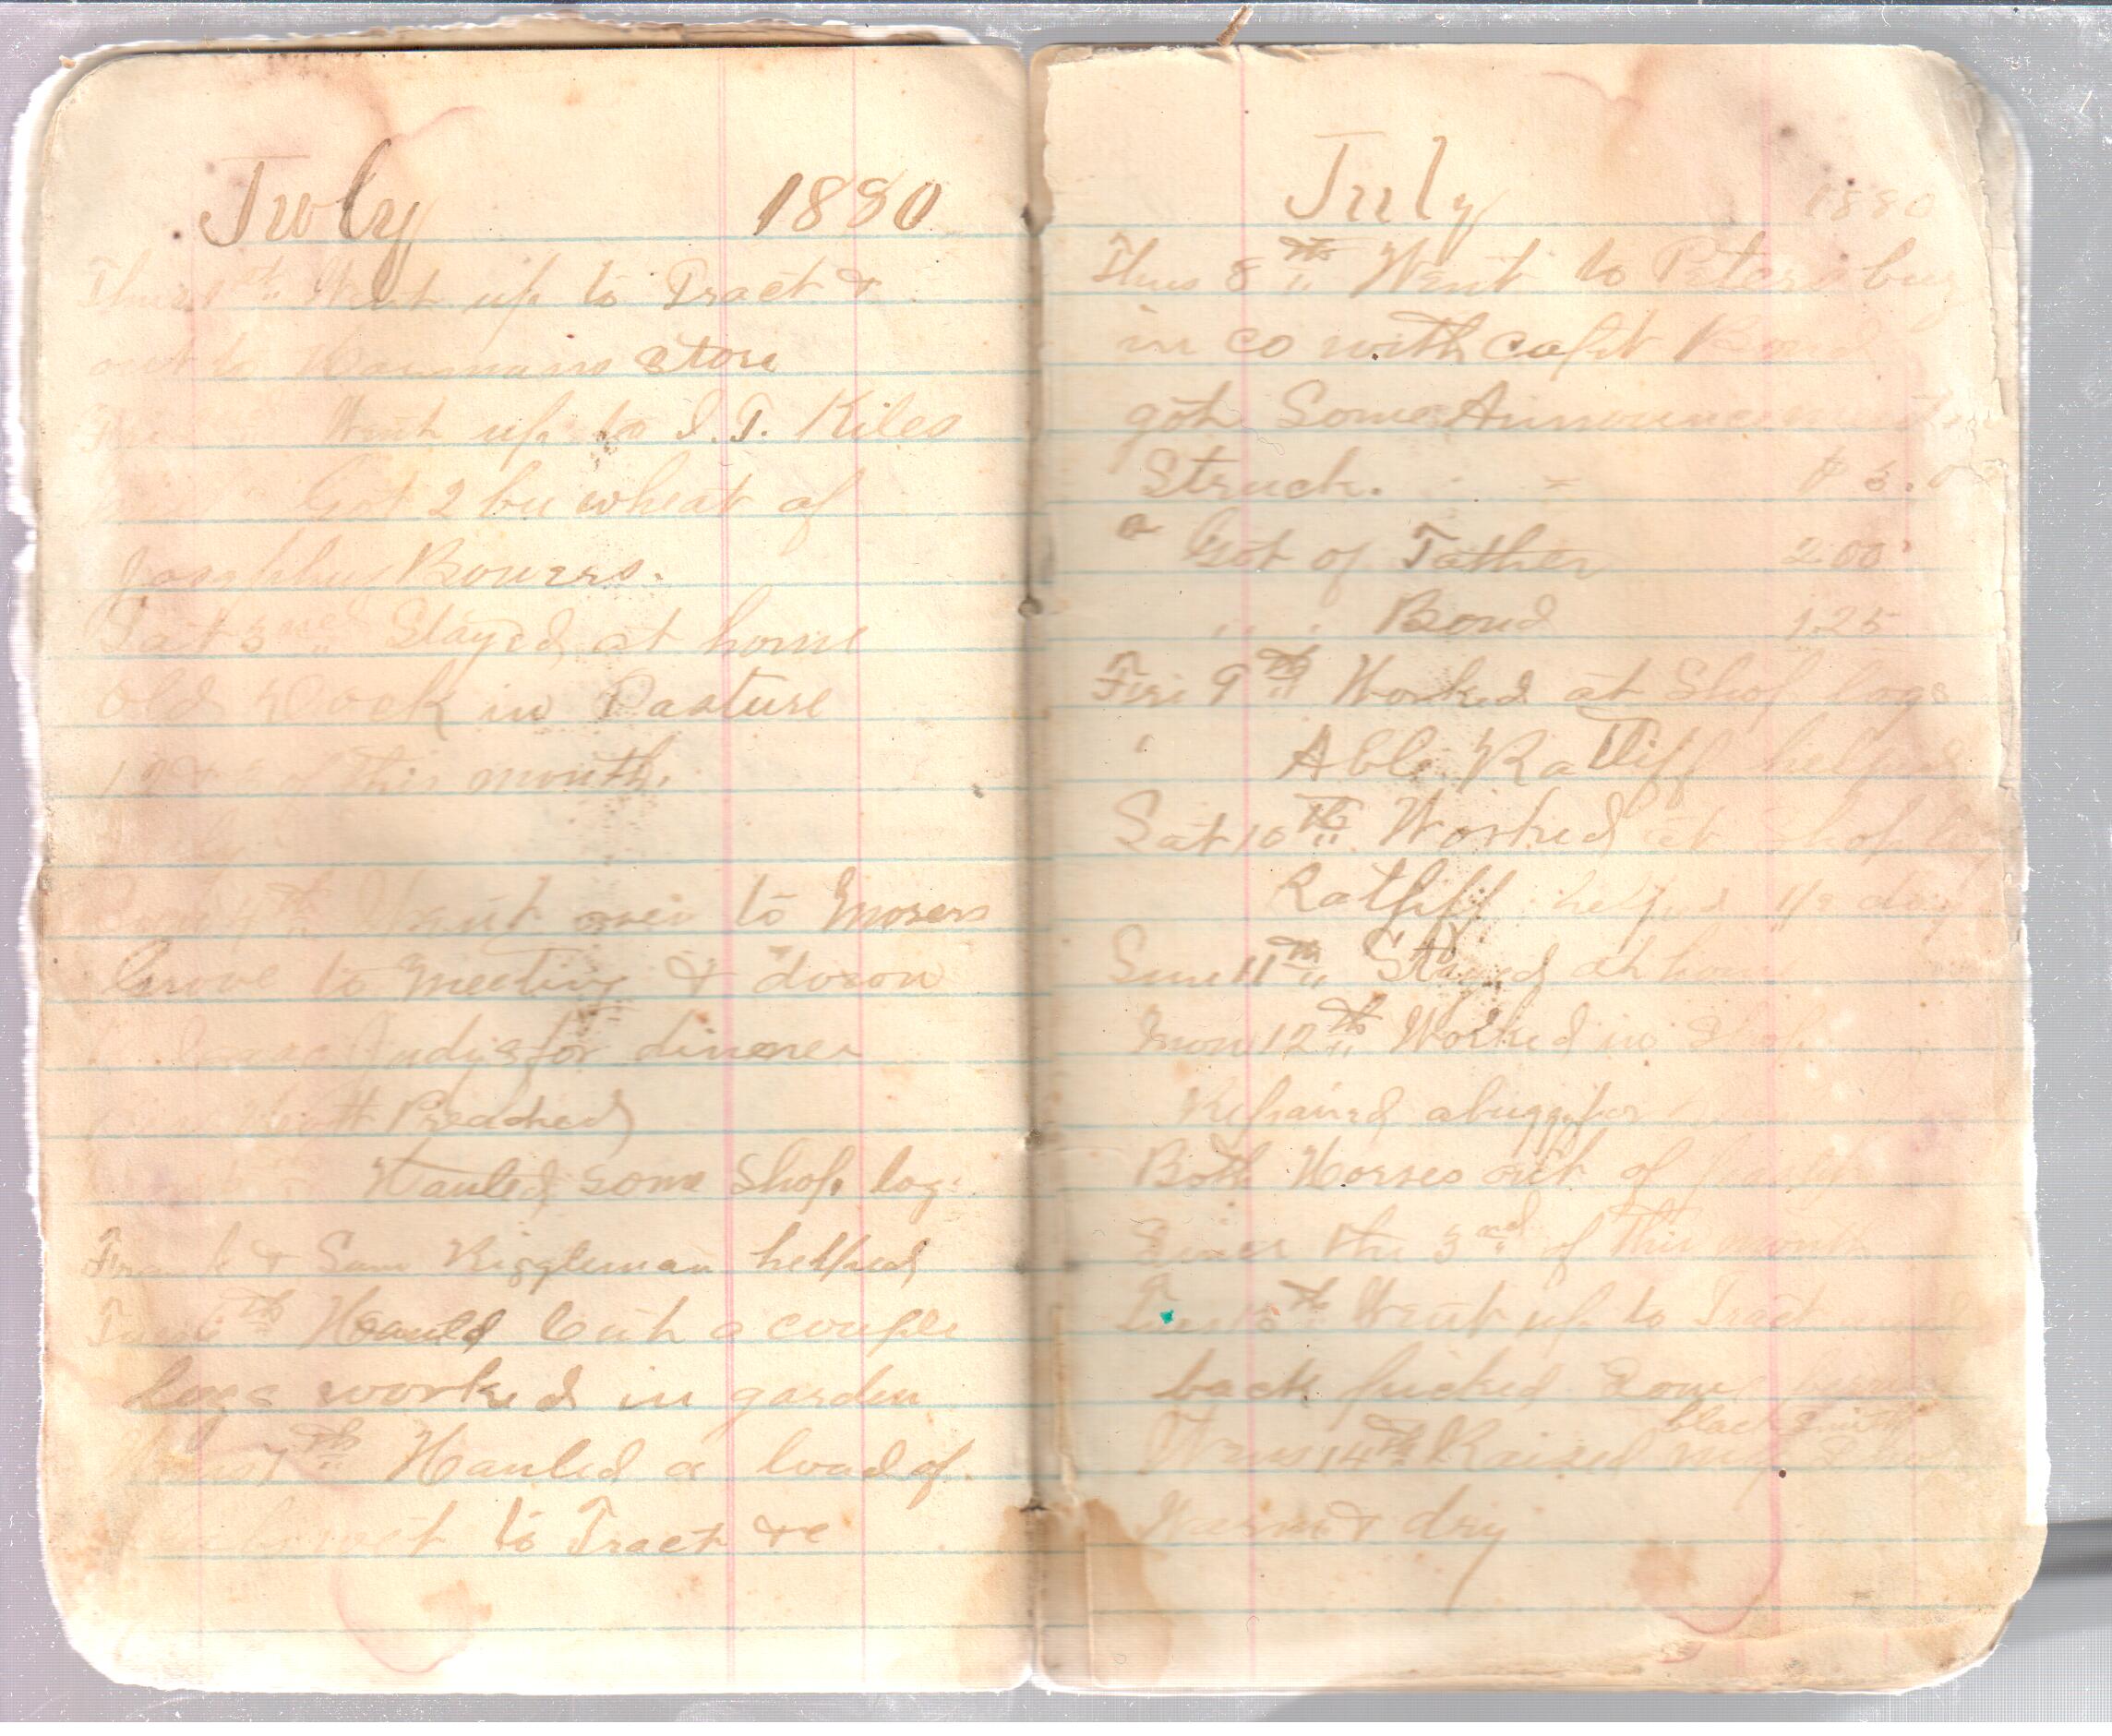 July 1880
Thus 1st Went up to Tract &
out to Harmans Store
Fri Went up to I. T. Kiles
Got 2 bu wheat of
Josephus Bowers.
Sat 3rd Stayed at home
old Dock in Pasture
1 2 & 3 of this month.
4th Went over to Mosers
Grove to Meeting & down
Isaac Judys for dinner
Preached
Hauled some Shop log
Frank & Sam Riggleman helped
Tues 6th Hauld Cut a couple
logs worked in garden
7th Hauled a load of
to Tract &c
July 1880
Thus 8th Went to Petersburg
in co with capt Bond
got Some Announcements
Struck. " $3.00
Got of Father 2.00
" " Bond 1.25
Fri 9th Worked at Shop logs
Able Ratliff helped
Sat 10th Worked at Shop
Ratliff helped 1/2 day
Sun 11th Stayed at home
Mon 12th Worked in Shop
Repaired a buggy for
Both Horses out of
Since the 3rd of this month
Tues 13th Went up to Tract
back picked Some
Wens 14th Raised my blacksmith Shop
Warm & dry